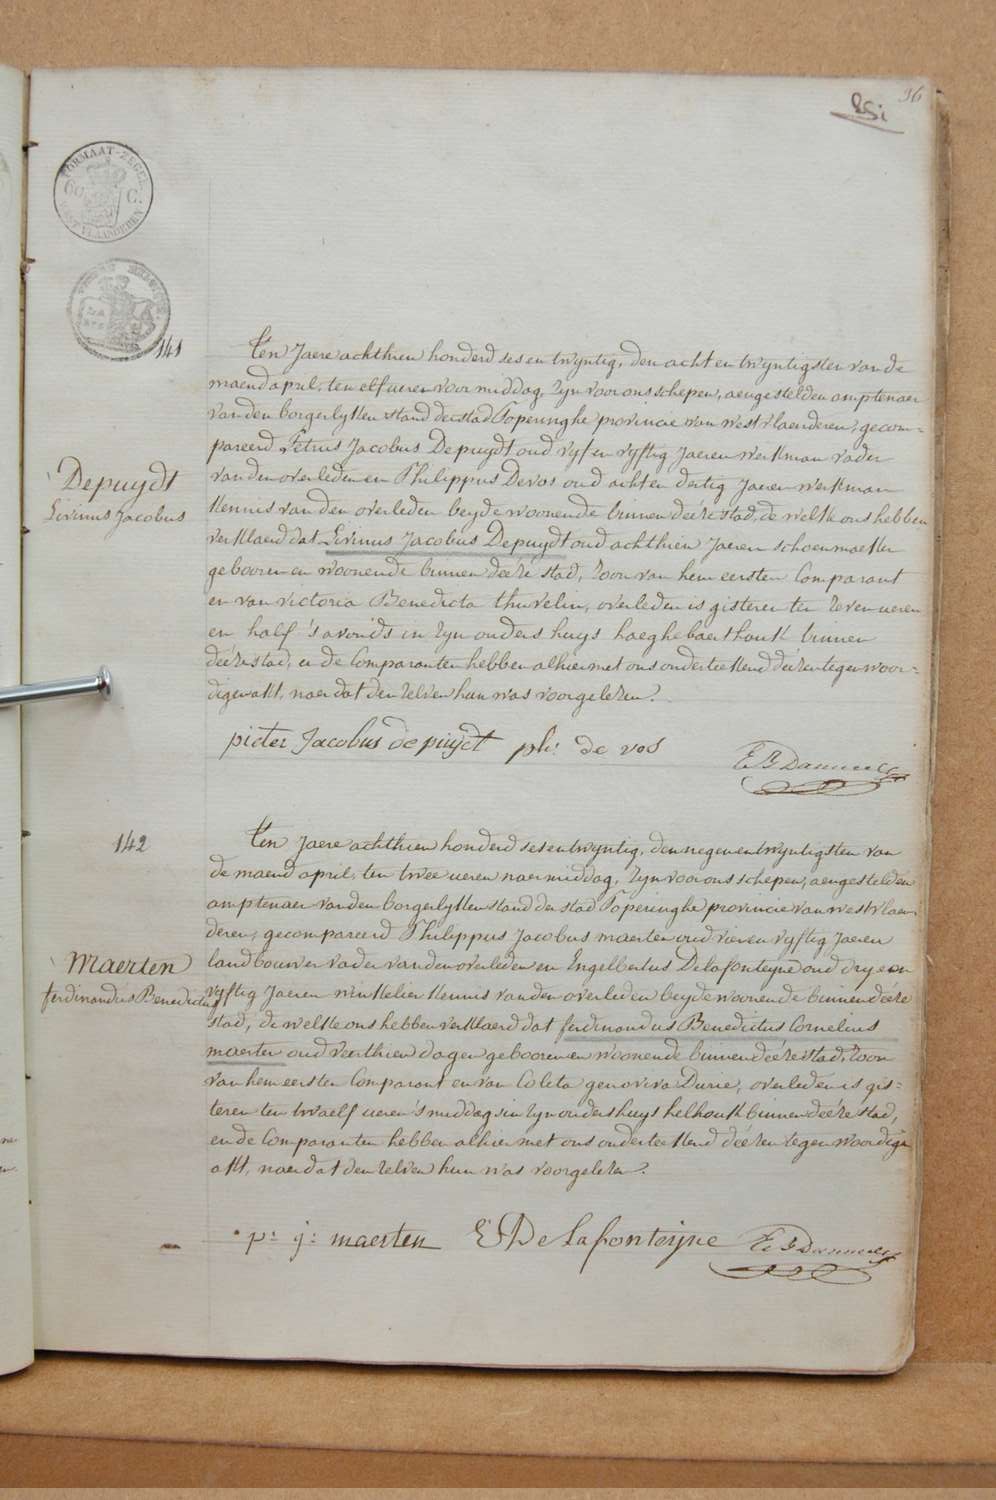 36
FORMAAT-ZEGEL
60 C.
WEST VLAANDEREN
141
Depuydt
Livinus Jacobus
Ten Jaere achthien honderd ses en twyntig, den acht en twyntigsten van de
maend april, ten elf ueren voormiddag, Zyn voor ons schepen, aengestelden amptenaer
van den borgerlyken stand der stad Poperinghe provincie van west vlaenderen, gecom=
pareerd Petrus Jacobus Depuydt oud vyf en vyftig Jaeren werkman vader
van den overleden en Philippus Devos oud acht en dertig Jaeren werkman
kennis van den overleden beyde woonende binnen deéze stad, de welke ons hebben
verklaerd dat Livinus Jacobus Depuydt oud achthien Jaeren schoenmaeker
gebooren en woonende binnen deéze stad, Zoon van hem eersten Comparant
en van victoria Benedicta thuvelin, overleden is gisteren ten Zeven ueren
en half 's avonds in Zyn ouders huys haeghebaerthoek binnen
deéze stad, en de Comparanten hebben alhier met ons onderteekend deézen tegenwoor=
digen akt, naer dat den Zelven hun was voorgelezen.
pieter Jacobus de puijdt ph: de vos
142
Maerten
ferdinandus Benedictus
Ten Jaere achthien honderd ses en twyntig, den negen en twyntigsten van
de maend april, ten twee ueren naermiddag, Zyn voor ons schepen, aengestelden
amptenaer van den borgerlyken stand der stad Poperinghe provincie van west vlaen=
deren, gecompareerd Philippus Jacobus maerten oud vier en vyftig Jaeren
landbouwer vader van den overleden en Engelbertus Delafonteyne oud dry en
vyftig Jaeren winkelier kennis van den overleden beyde woonende binnen deéze
stad, de welke ons hebben verklaerd dat ferdinandus Benedictus Cornelius
maerten oud veerthien dagen gebooren en woonende binnen deéze stad, Zoon
van hem eersten Comparant en van Coleta genoveva Durie, overleden is gis=
teren ten twaelf ueren 's middags in Zyn ouders huys helhoek binnen deéze stad,
en de Comparanten hebben alhier met ons onderteekend deézen tegenwoordigen
akt, naer dat den Zelven hun was voorgelezen.
p: j: maerten E Delafonteijne